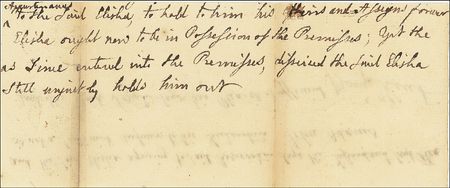 Appurtenances
to the Said Elisha to hold to him his Heirs and Assigns forever
Elisha ought now to be in Possession of the Premisses; Yet the
as Since entered into the Premisses, disseised the Said Elisha
Still unjustly holds him out